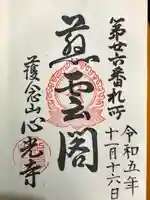 第廿六番札所
令和五年
十一月十六日
慈雲閣
護念山心光寺